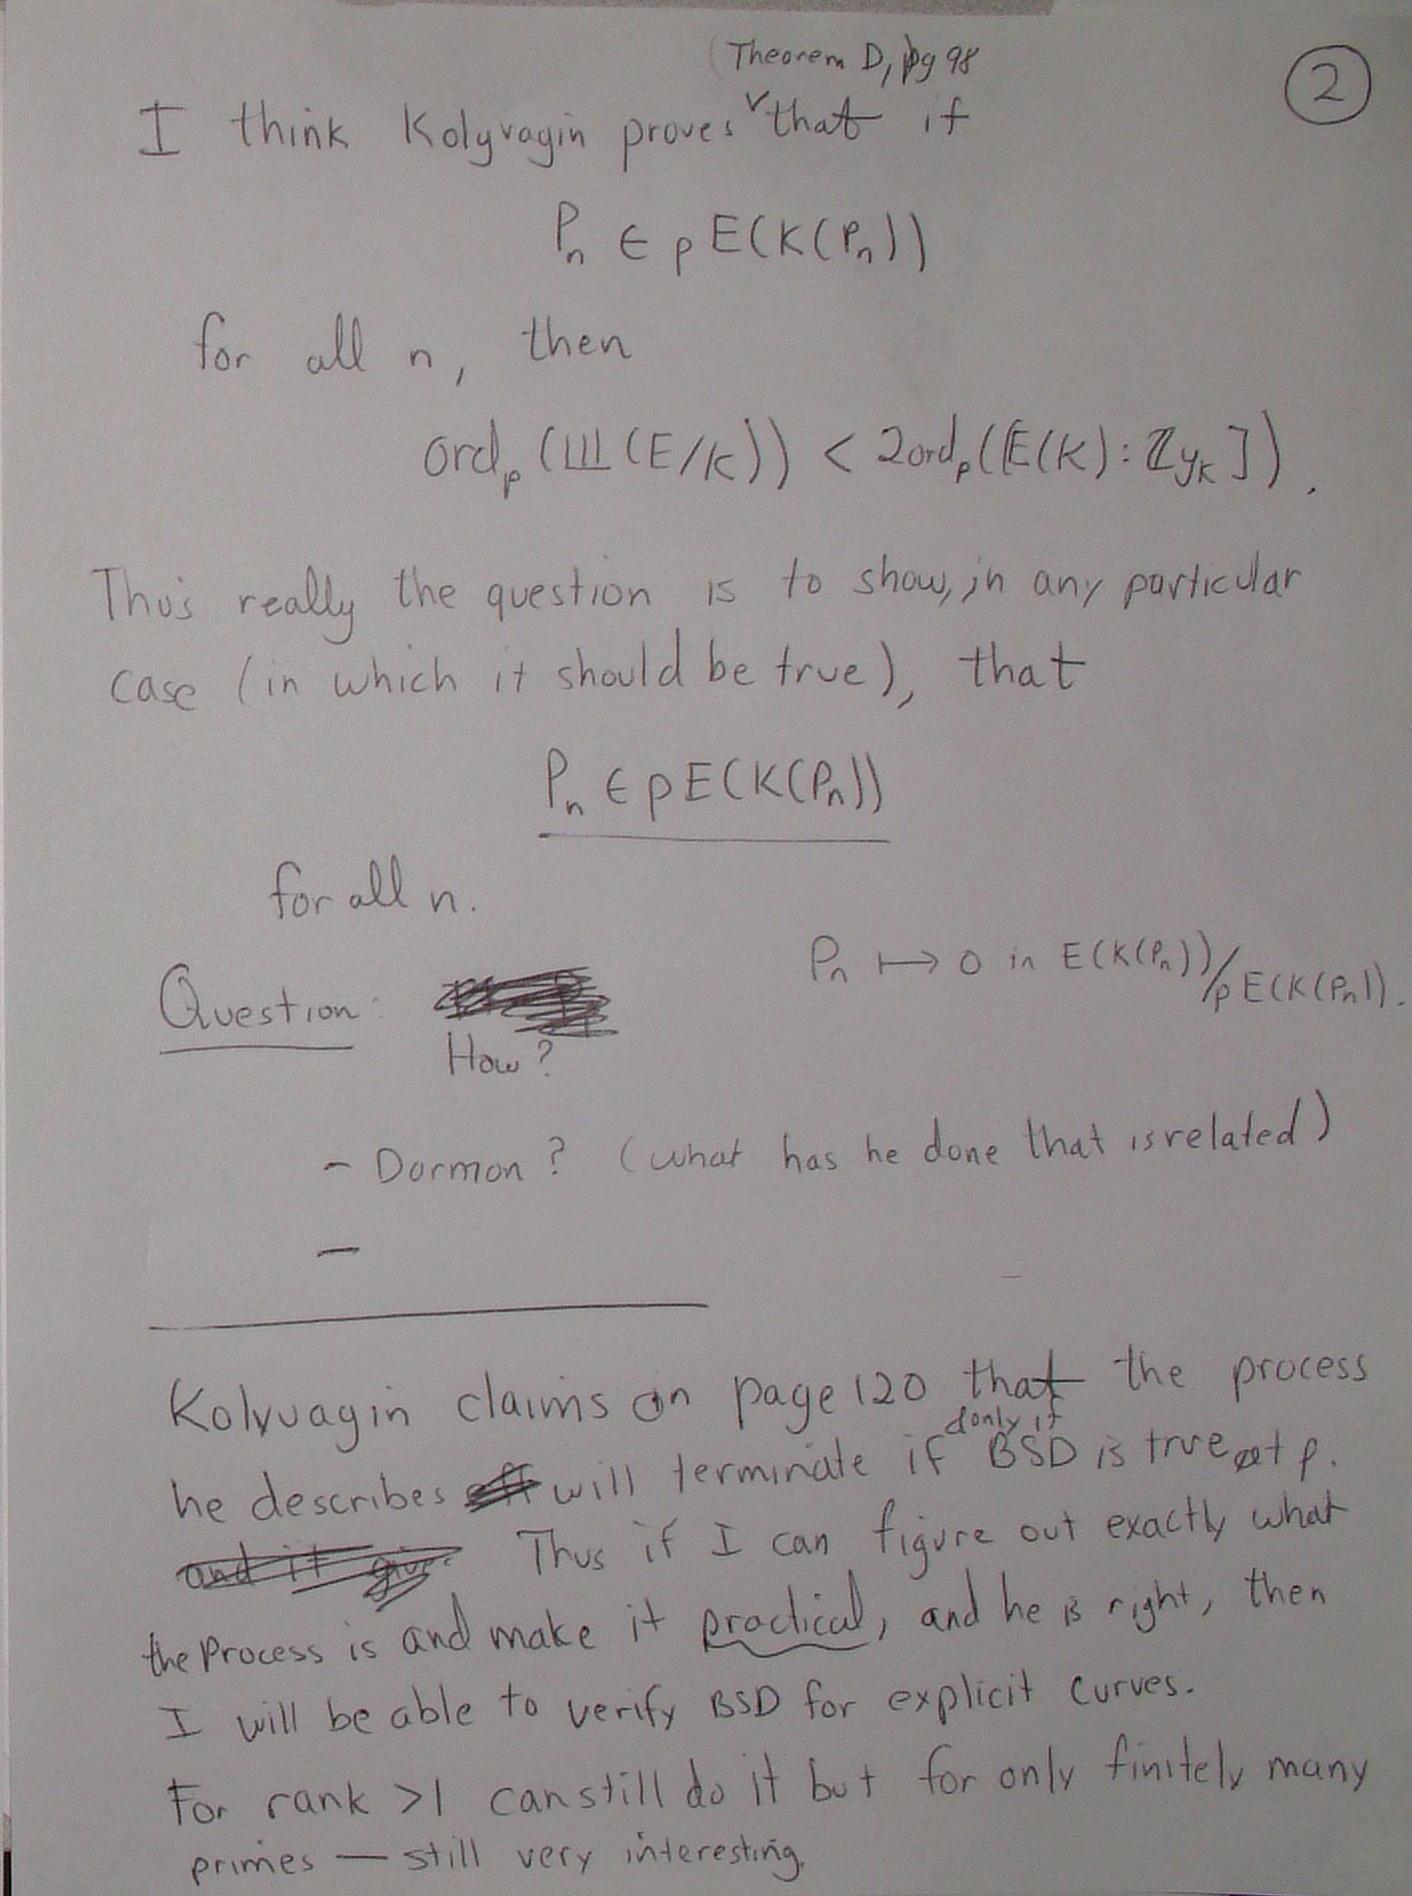 (Theorem D, pg 98
2
I think Kolyvagin proves that if
Pn ∈ pE(K(Pn))
for all n, then
ordp (Ш(E/K)) < 2ordp([E(K):ℤyK]).
Thus really the question is to show, in any particular
case (in which it should be true), that
Pn ∈ pE(K(Pn))
for all n.
Pn ↦ 0 in E(K(Pn))/pE(K(Pn)).
Question:
How?
- Darmon? (what has he done that is related)
-
Kolyvagin claims on page 120 that the process
&only if
he describes will terminate if BSD is true at p.
and it give Thus if I can figure out exactly what
the process is and make it practical, and he is right, then
I will be able to verify BSD for explicit curves.
For rank >1 can still do it but for only finitely many
primes — still very interesting.